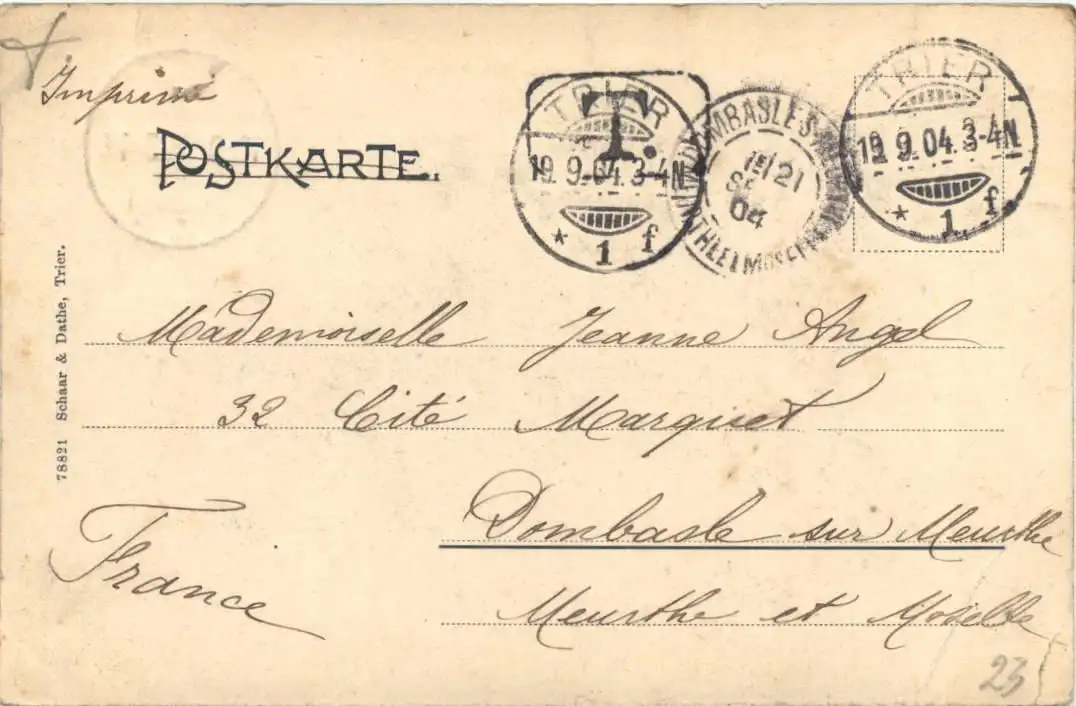 Imprimé
POSTKARTE.
T.
TRIER
19.9.04.3-4N.
* 1 f
DOMBASLE S
21
SE
04
MEURTHE ET MOSELLE
TRIER
19.9.04.3-4N.
* 1 f
78821 Schaar & Dathe, Trier.
Mademoiselle Jeanne Angel
32 Cité Marquet
Dombasle sur Meurthe
Meurthe et Moselle
France
23